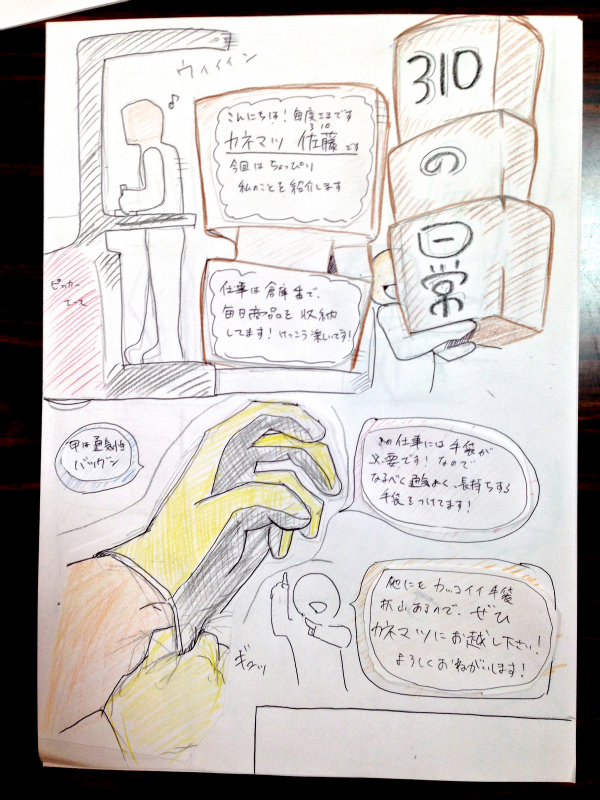 310
の
日常
ウィィィン
♪
こんにちは！毎度どうもです
310
カネマツ 佐藤です
今回はちょっぴり
私のことを紹介します
仕事は倉庫番で、
毎日商品を収納
してます！けっこう楽しいです！
ピッカー
エース
甲は通気性
バツグン
この仕事には手袋が
必要です！なので
なるべく通気よく、長持ちする
手袋をつけてます！
他にもカッコイイ手袋
沢山あるので、ぜひ
カネマツにお越し下さい！
よろしくおねがいします！
ギュッ